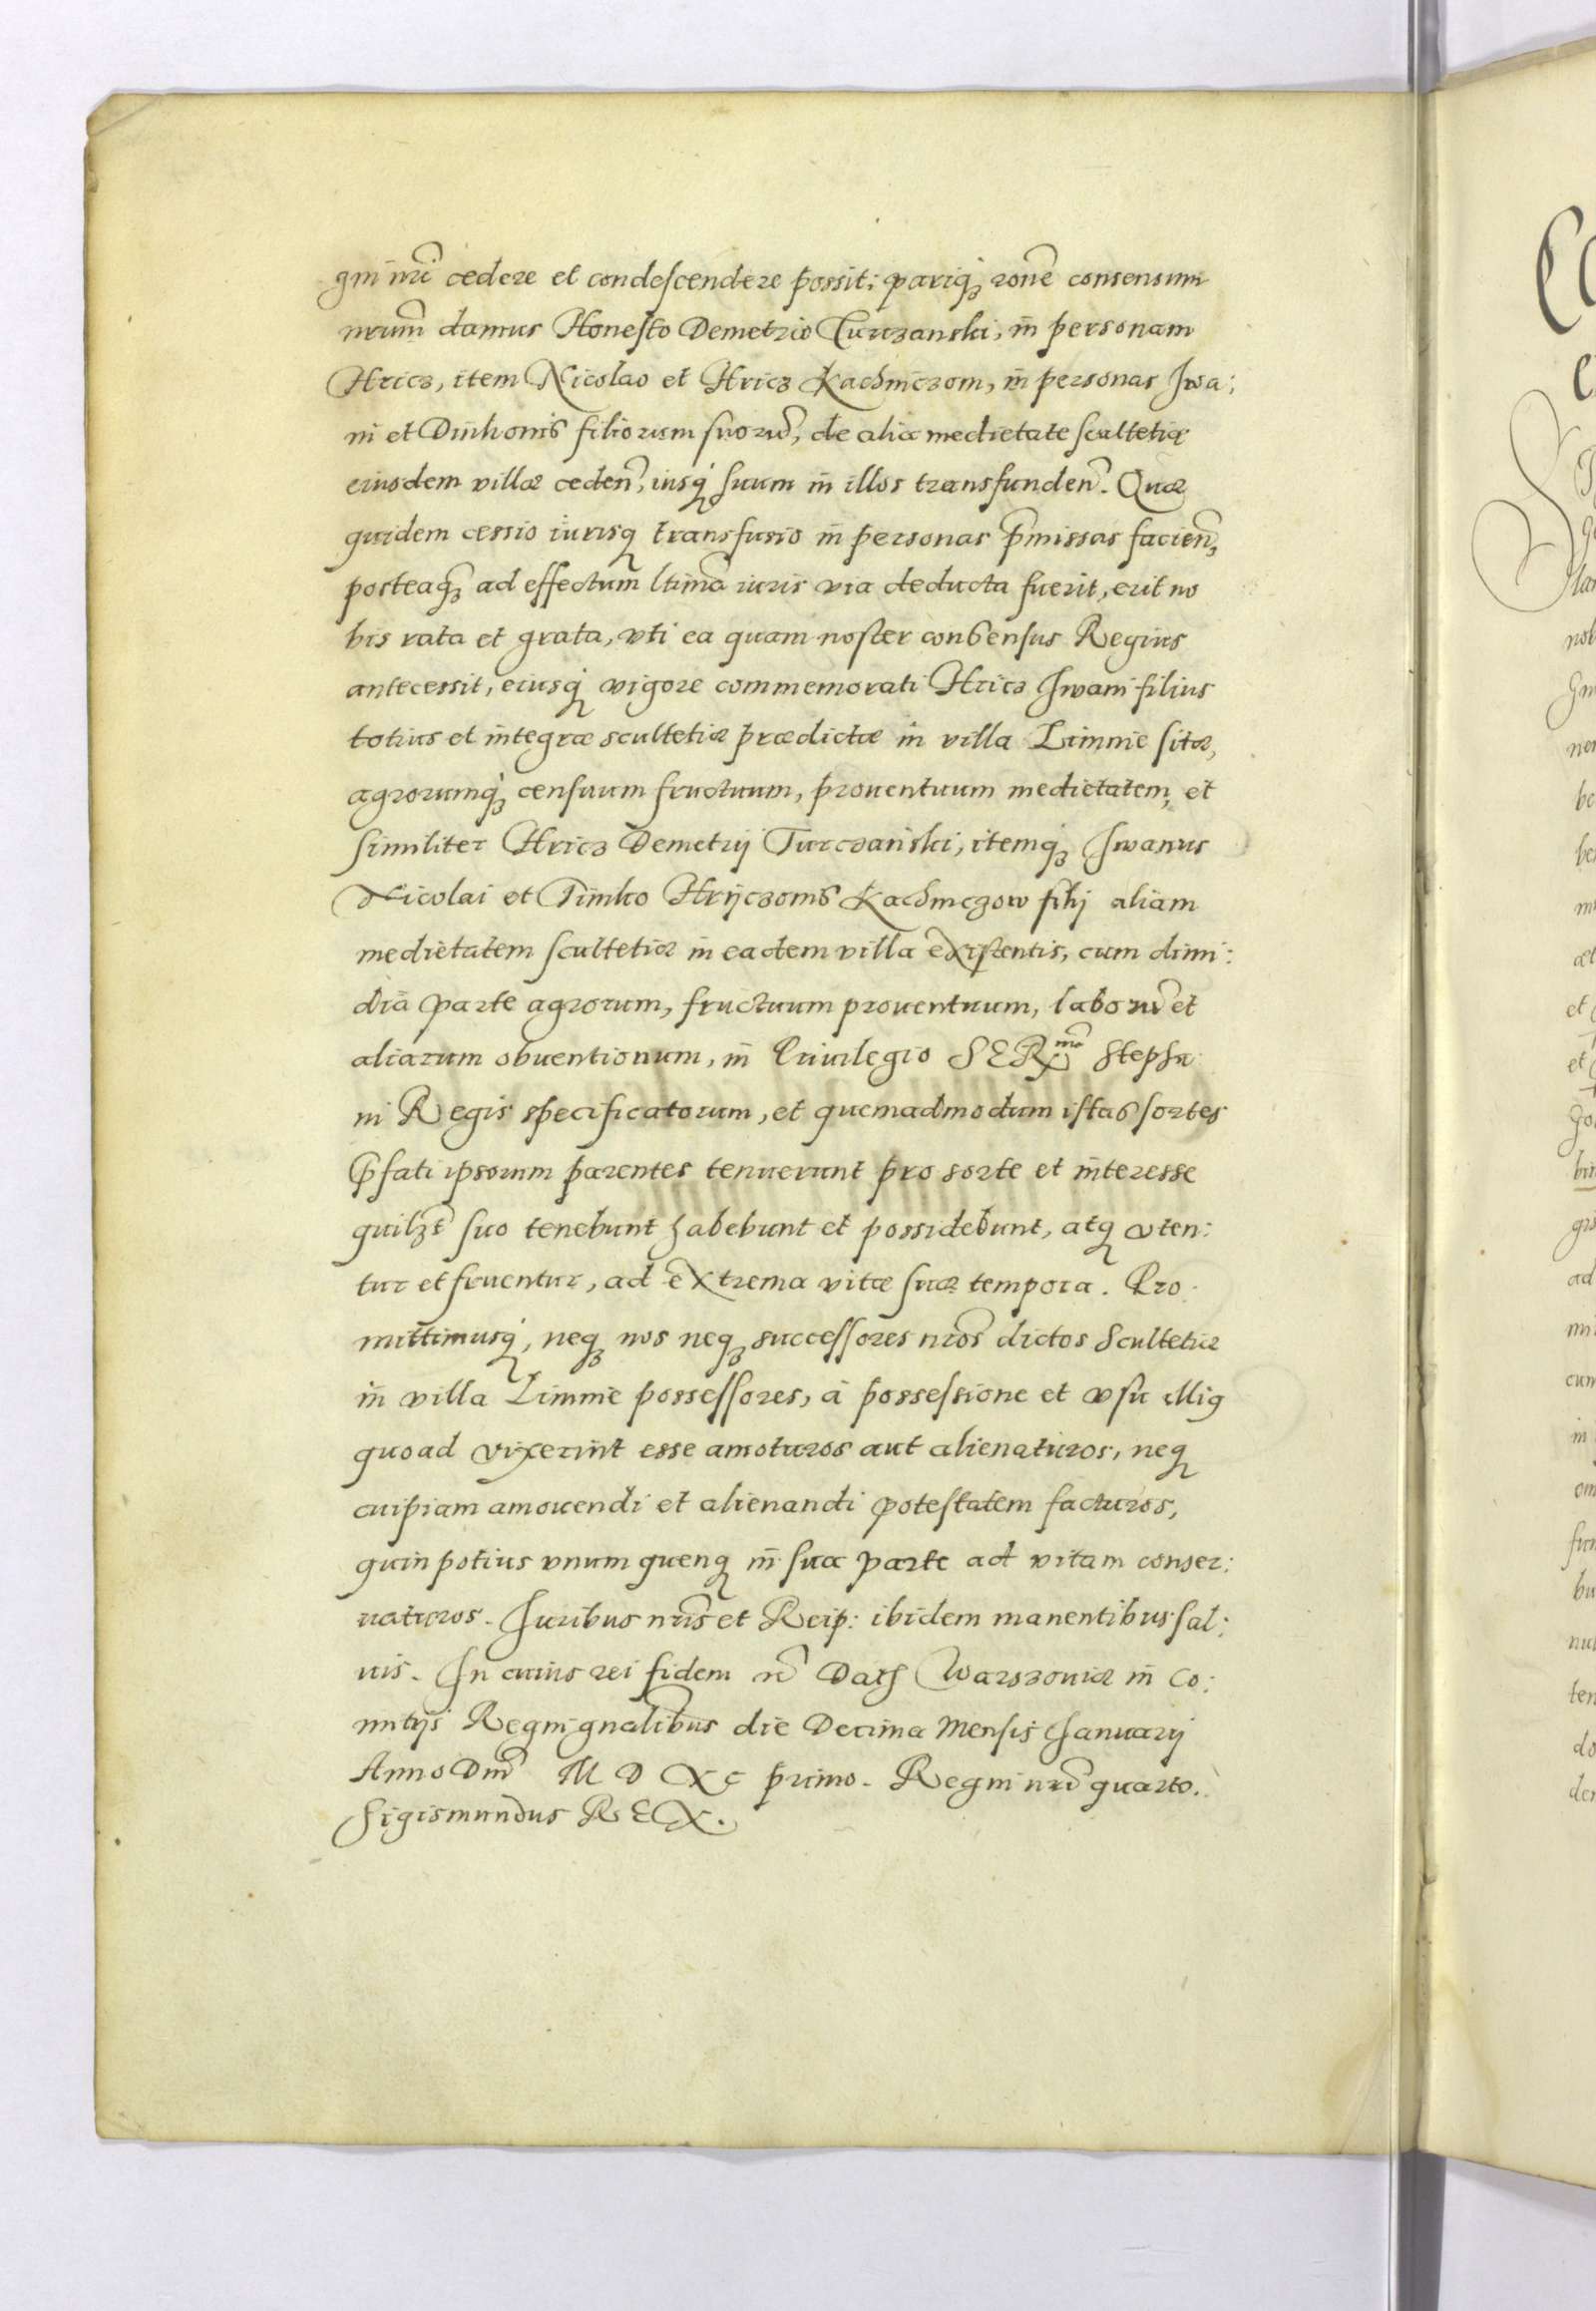 gni nr̃i cedere et condescendere possit; pariq₃ rone᷉ consensum
nrum᷉ damus Honesto Demetrio Turczanski, in personam
Hricz, item Nicolao et Hricz Kachniczom, in personas Iwa:
ni et Dimkonis filiorum suoru᷉, de alia medietate scultetiæ
eiusdem villæ ceden᷉, iusq₃ suum in illos transfunden᷉. Quæ
quidem cessio iurisq₃ transfusio in personas p᷉missas facien᷉,
posteaq᷉₃ ad effectum ltima᷉ iuris via deducta fuerit, erit no
bis rata et grata, vti ea quam noster consensus Regius
antecessit, eiusq₃ vigore commemorati Hricz Iwani filius
totius et integræ scultetiæ prædictæ in villa Limnie sitæ,
agrorumq₃ censuum fructuum, prouentuum medietatem, et
similiter Hricz Demetrij Turczanski, itemq₃ Iwanus
Nicolai et Timko Hrijczonis Kachnczow filij aliam
medietatem scultetiæ in eadem villa existentis, cum dimi:
dia parte agrorum, fructuum prouentuum, laboru᷉ et
aliarum obuentionum, in Priuilegio SER᷉mi Stepha
ni Regis specificatorum, et quemadmodum istas sortes
p᷉fati ipsorum parentes tenuerunt pro sorte et interesse
quilzt᷉ suo tenebunt habebunt et possidebunt, atq₃ vten:
tur et fruentur, ad extrema vitæ suæ tempora. Pro
mittimusq₃, neq₃ nos neq₃ successores nros᷉ dictos scultetiæ
in villa Limnie possessores, à possessione et vsu illiꝯ
quoad vixerint esse amoturos aut alienaturos, neq₃
cuipiam amouendi et alienandi potestatem facturos,
quin potius vnum quenq₃ in sua parte ad vitam conser:
uaturos. Iuribus nris᷉ et Reip: ibidem manentibus sal:
uis. In cuius rei fidem rc᷉ Dat Warszouiæ in Co:
mitijs Regni gnalibus᷉ die Decima Mensis Ianuarij
Anno Dni᷉ M D XC primo. Regni nri᷉ quarto.
Sigismundus REX.